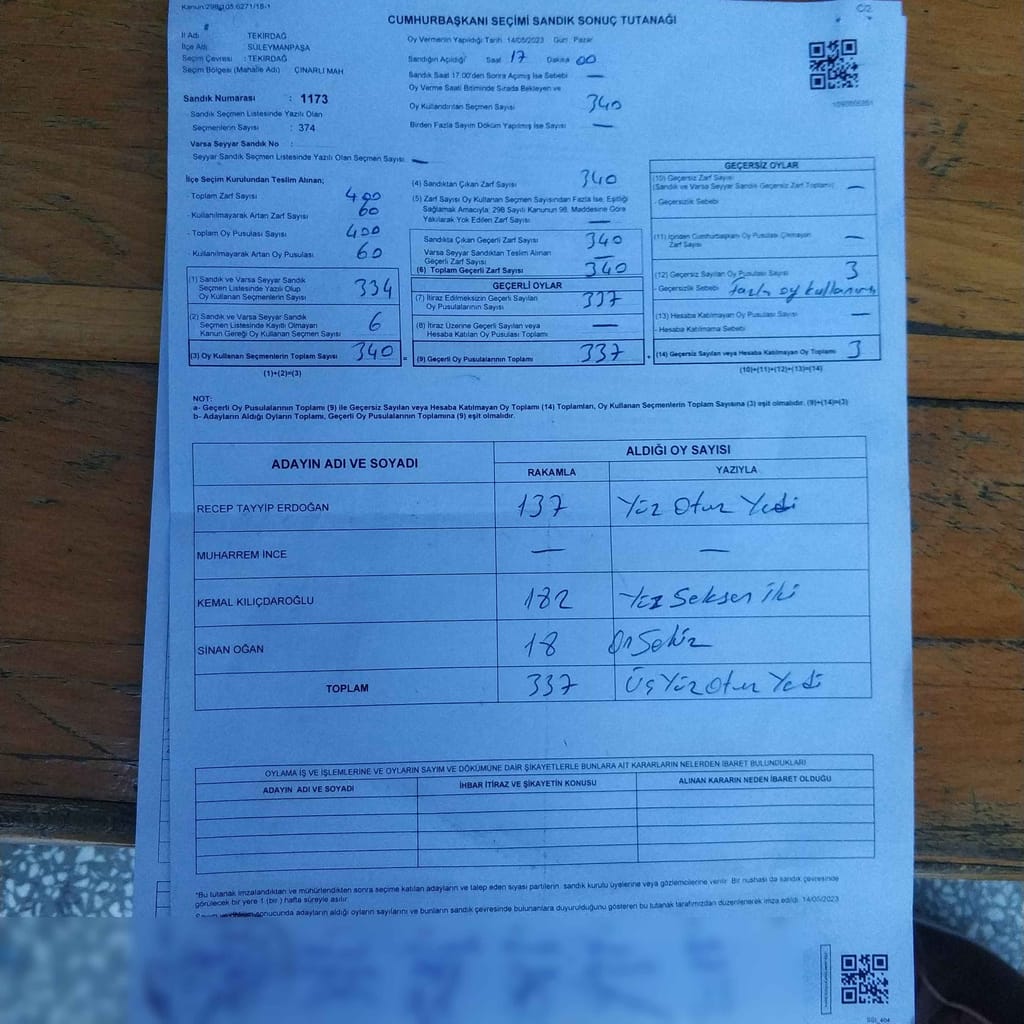 Kanun:298,105,6271/18-1
C/2
CUMHURBAŞKANI SEÇİMİ SANDIK SONUÇ TUTANAĞI
İl Adı : TEKİRDAĞ
İlçe Adı : SÜLEYMANPAŞA
Seçim Çevresi : TEKİRDAĞ
Seçim Bölgesi (Mahalle Adı) ÇINARLI MAH
Sandık Numarası : 1173
Sandık Seçmen Listesinde Yazılı Olan
Seçmenlerin Sayısı : 374
Varsa Seyyar Sandık No :
Seyyar Sandık Seçmen Listesinde Yazılı Olan Seçmen Sayısı —
Oy Vermenin Yapıldığı Tarih 14/05/2023 Gün : Pazar
Sandığın Açıldığı Saat 17 Dakika 00
Sandık Saat 17.00'den Sonra Açımış İse Sebebi —
Oy Verme Saati Bitiminde Sırada Bekleyen ve
Oy Kullandırılan Seçmen Sayısı 340
Birden Fazla Sayım Döküm Yapılmış İse Sayısı —
İlçe Seçim Kurulundan Teslim Alınan;
- Toplam Zarf Sayısı 400
- Kullanılmayarak Artan Zarf Sayısı 60
- Toplam Oy Pusulası Sayısı 400
- Kullanılmayarak Artan Oy Pusulası 60
(1) Sandık ve Varsa Seyyar Sandık
Seçmen Listesinde Yazılı Olup
Oy Kullanan Seçmenlerin Sayısı 334
(2) Sandık ve Varsa Seyyar Sandık
Seçmen Listesinde Kayıtlı Olmayan
Kanun Gereği Oy Kullanan Seçmen Sayısı 6
(3) Oy Kullanan Seçmenlerin Toplam Sayısı 340
(1)+(2)=(3)
(4) Sandıktan Çıkan Zarf Sayısı 340
(5) Zarf Sayısı Oy Kullanan Seçmen Sayısından Fazla İse, Eşitliği
Sağlamak Amacıyla, 298 Sayılı Kanunun 98. Maddesine Göre
Yakılarak Yok Edilen Zarf Sayısı —
Sandıkta Çıkan Geçerli Zarf Sayısı 340
Varsa Seyyar Sandıktan Teslim Alınan
Geçerli Zarf Sayısı —
(6) Toplam Geçerli Zarf Sayısı 340
GEÇERLİ OYLAR
(7) İtiraz Edilmeksizin Geçerli Sayılan
Oy Pusulalarının Sayısı 337
(8) İtiraz Üzerine Geçerli Sayılan veya
Hesaba Katılan Oy Pusulası Toplamı —
= (9) Geçerli Oy Pusulalarının Toplamı 337
GEÇERSİZ OYLAR
(10) Geçersiz Zarf Sayısı
(Sandık ve Varsa Seyyar Sandık Geçersiz Zarf Toplamı) —
- Geçersizlik Sebebi
(11) İçinden Cumhurbaşkanı Oy Pusulası Çıkmayan
Zarf Sayısı —
(12) Geçersiz Sayılan Oy Pusulası Sayısı 3
- Geçersizlik Sebebi fazla oy kullanımı
(13) Hesaba Katılmayan Oy Pusulası Sayısı —
- Hesaba Katılmama Sebebi
+ (14) Geçersiz Sayılan veya Hesaba Katılmayan Oy Toplamı 3
(10)+(11)+(12)+(13)=(14)
NOT:
a- Geçerli Oy Pusulalarının Toplamı (9) ile Geçersiz Sayılan veya Hesaba Katılmayan Oy Toplamı (14) Toplamları, Oy Kullanan Seçmenlerin Toplam Sayısına (3) eşit olmalıdır. (9)+(14)=(3)
b- Adayların Aldığı Oyların Toplamı, Geçerli Oy Pusulalarının Toplamına (9) eşit olmalıdır.
ADAYIN ADI VE SOYADI
ALDIĞI OY SAYISI
RAKAMLA YAZIYLA
RECEP TAYYİP ERDOĞAN 137 Yüz Otuz Yedi
MUHARREM İNCE — —
KEMAL KILIÇDAROĞLU 182 Yüz Seksen İki
SİNAN OĞAN 18 On Sekiz
TOPLAM 337 Üç Yüz Otuz Yedi
OYLAMA İŞ VE İŞLEMLERİNE VE OYLARIN SAYIM VE DÖKÜMÜNE DAİR ŞİKAYETLERLE BUNLARA AİT KARARLARIN NELERDEN İBARET BULUNDUKLARI
ADAYIN ADI VE SOYADI İHBAR İTİRAZ VE ŞİKAYETİN KONUSU ALINAN KARARIN NEDEN İBARET OLDUĞU
*Bu tutanak imzalandıktan ve mühürlendikten sonra seçime katılan adayların ve talep eden siyasi partilerin, sandık kurulu üyelerine veya gözlemcilerine verilir. Bir nüshası da sandık çevresinde
görülecek bir yere 1 (bir) hafta süreyle asılır.
sonucunda adayların aldığı oyların sayılarını ve bunların sandık çevresinde bulunanlara duyurulduğunu gösteren bu tutanak tarafımızdan düzenlenerek imza edildi. 14/05/2023